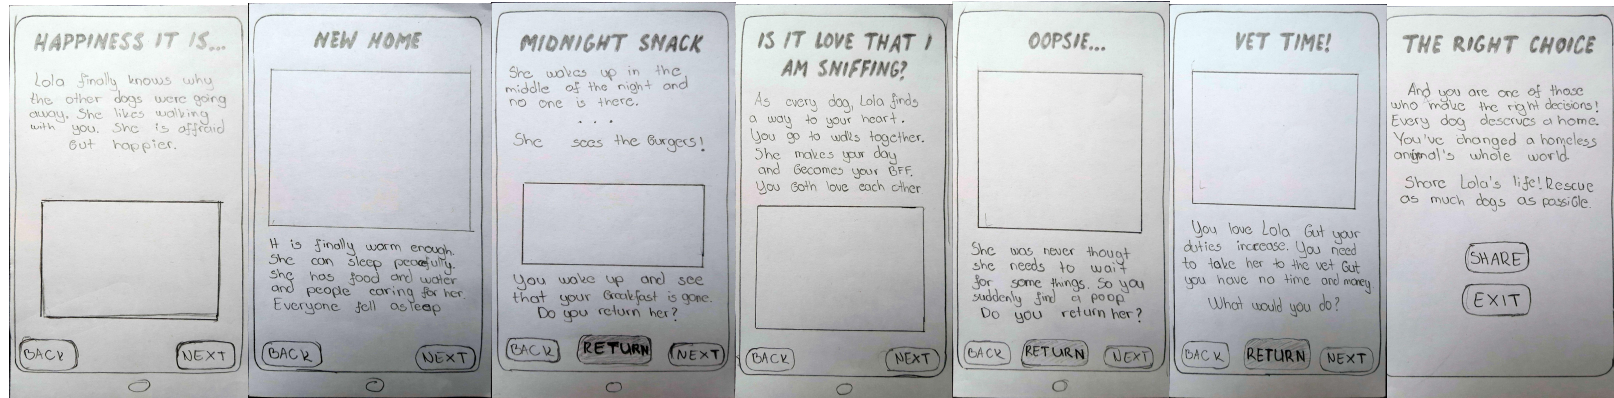 HAPPINESS IT IS...
Lola finally knows why
the other dogs were going
away. She likes walking
with you. She is affraid
but happier.
BACK
NEXT
NEW HOME
It is finally warm enough.
She can sleep peacefully.
She has food and water
and people caring for her.
Everyone fell asleep
BACK
NEXT
MIDNIGHT SNACK
She wakes up in the
middle of the night and
no one is there.
. . .
She sees the burgers!
You wake up and see
that your breakfast is gone.
Do you return her?
BACK
RETURN
NEXT
IS IT LOVE THAT I
AM SNIFFING?
As every dog, Lola finds
a way to your heart.
You go to walks together.
She makes your day
and becomes your BFF.
You both love each other
BACK
NEXT
OOPSIE...
She was never thougt
she needs to wait
for some things. So you
suddenly find a poop
Do you return her?
BACK
RETURN
NEXT
VET TIME!
You love Lola but your
duties increase. You need
to take her to the vet but
you have no time and money.
What would you do?
BACK
RETURN
NEXT
THE RIGHT CHOICE
And you are one of those
who make the right decisions!
Every dog deserves a home.
You've changed a homeless
animal's whole world.
Share Lola's life! Rescue
as much dogs as possible.
SHARE
EXIT